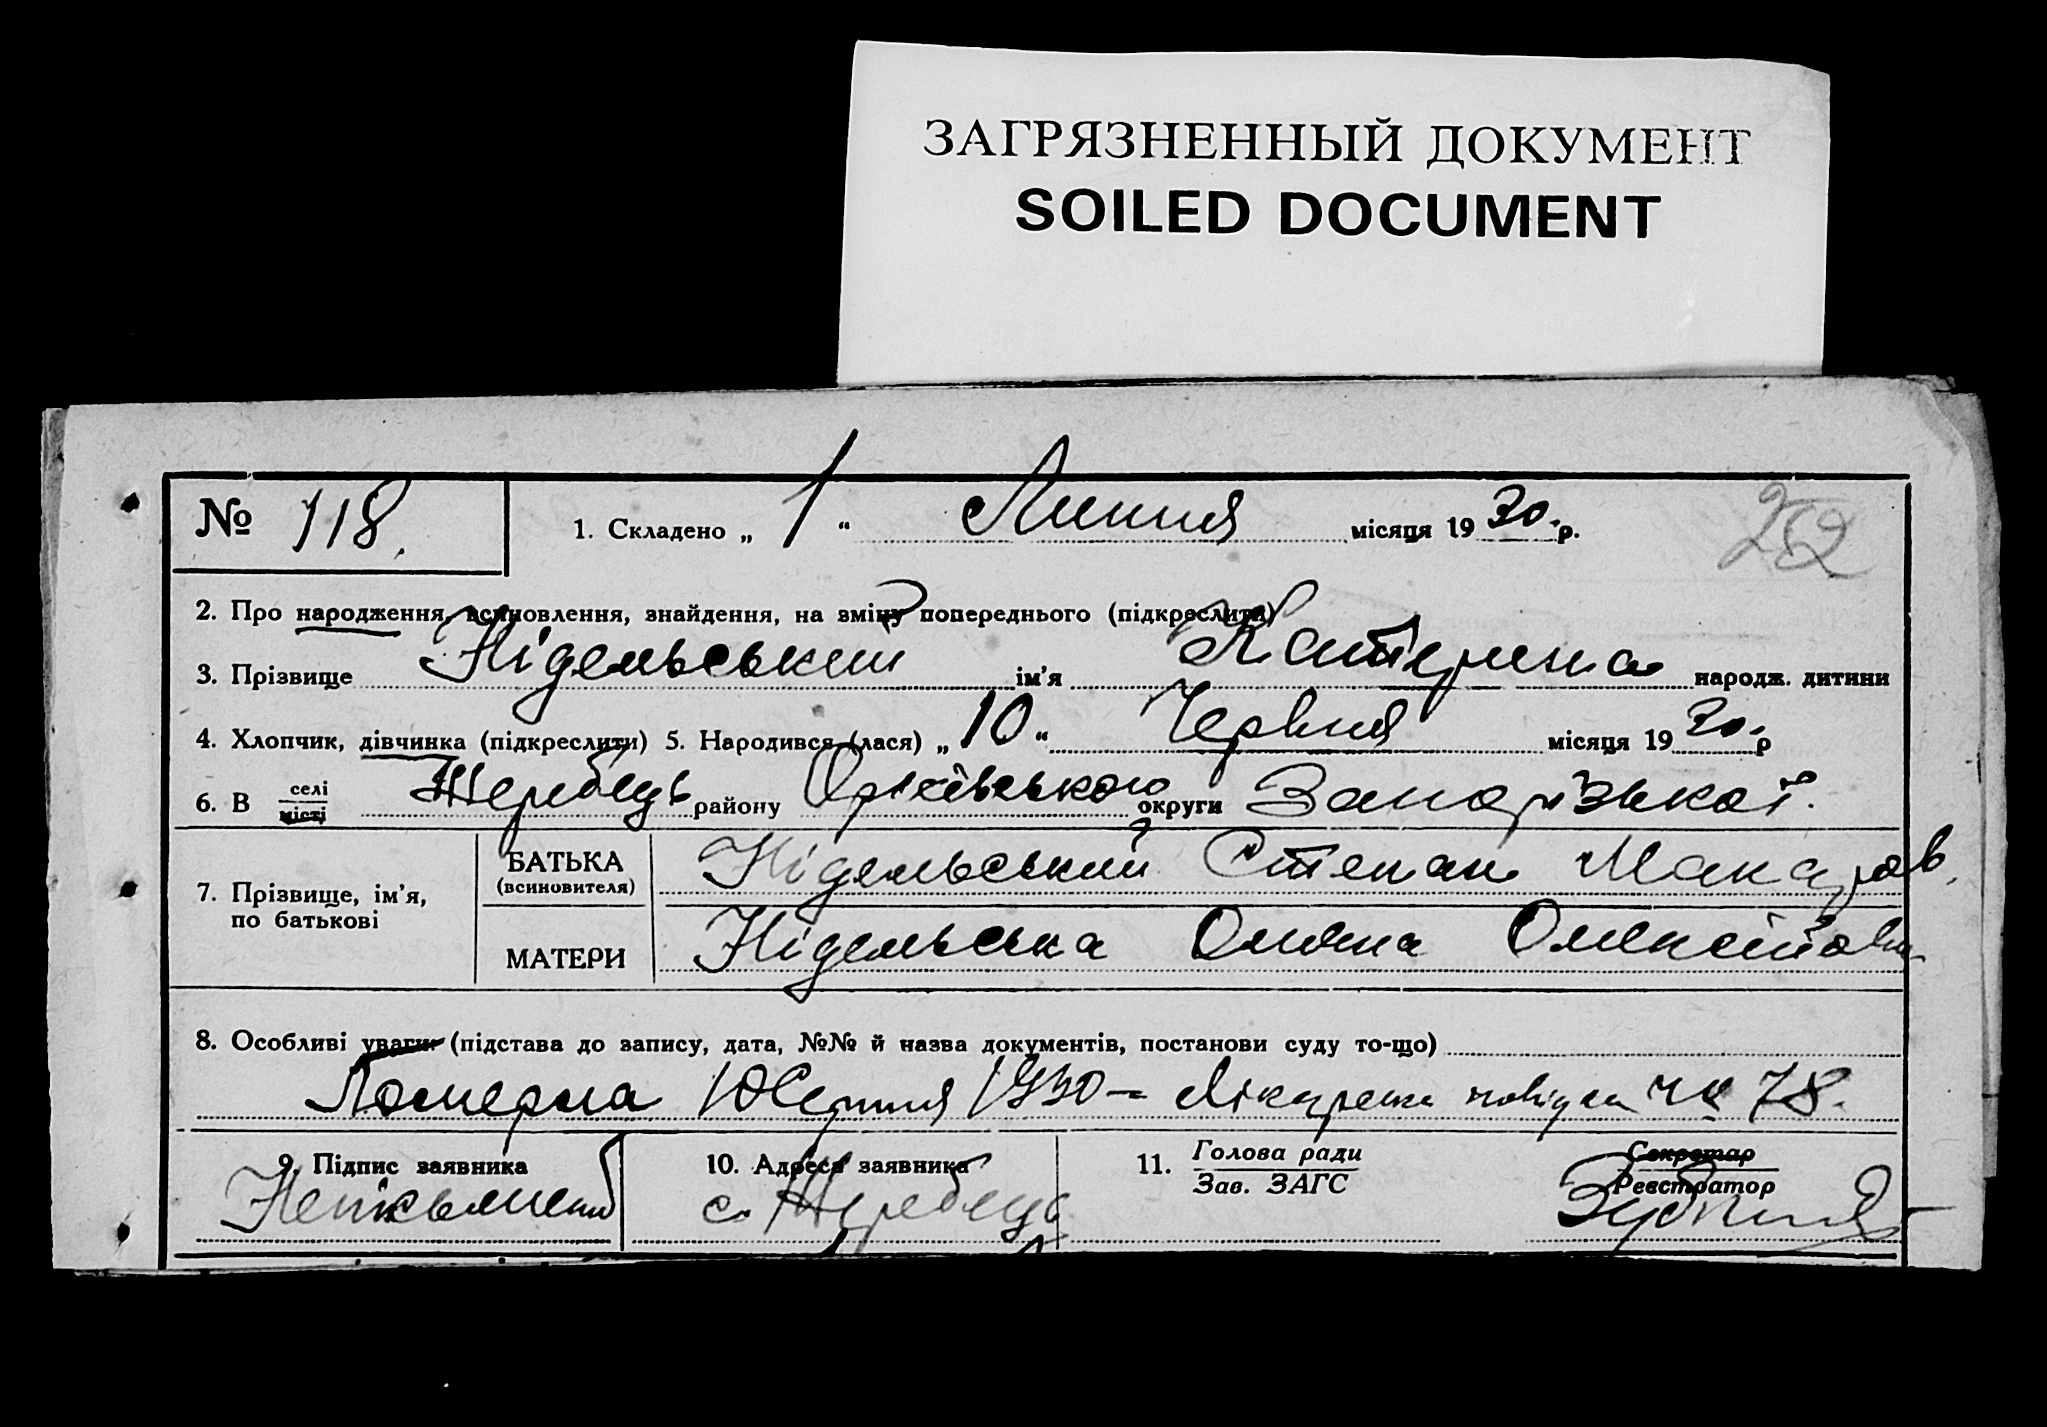 ЗАГРЯЗНЕННЫЙ ДОКУМЕНТ
SOILED DOCUMENT
№ 118.
1. Складено „ 1 “ Липня місяця 19 30. р.
252
2. Про народження, всиновлення, знайдення, на зміну попереднього (підкреслити)
3. Прізвище Нідельський ім'я Катерина народж. дитини
4. Хлопчик, дівчинка (підкреслити) 5. Народився (лася) „ 10 “ Червня місяця 19 30. р
6. В селі місті Жеребець району Оріхівського округи Запорізької.
7. Прізвище, ім'я, по батькові
БАТЬКА (всиновителя) Нідельський Степан Макаров.
МАТЕРИ Нідельська Олена
8. Особливі уваги (підстава до запису, дата, №№ й назва документів, постанови суду то-що)
Померла 10 Серпня 1930 – Лікарська 78.
9. Підпис заявника
10. Адреса заявника
с. Жеребець
11. Голова ради
Зав. ЗАГС
Секретар
Реєстратор